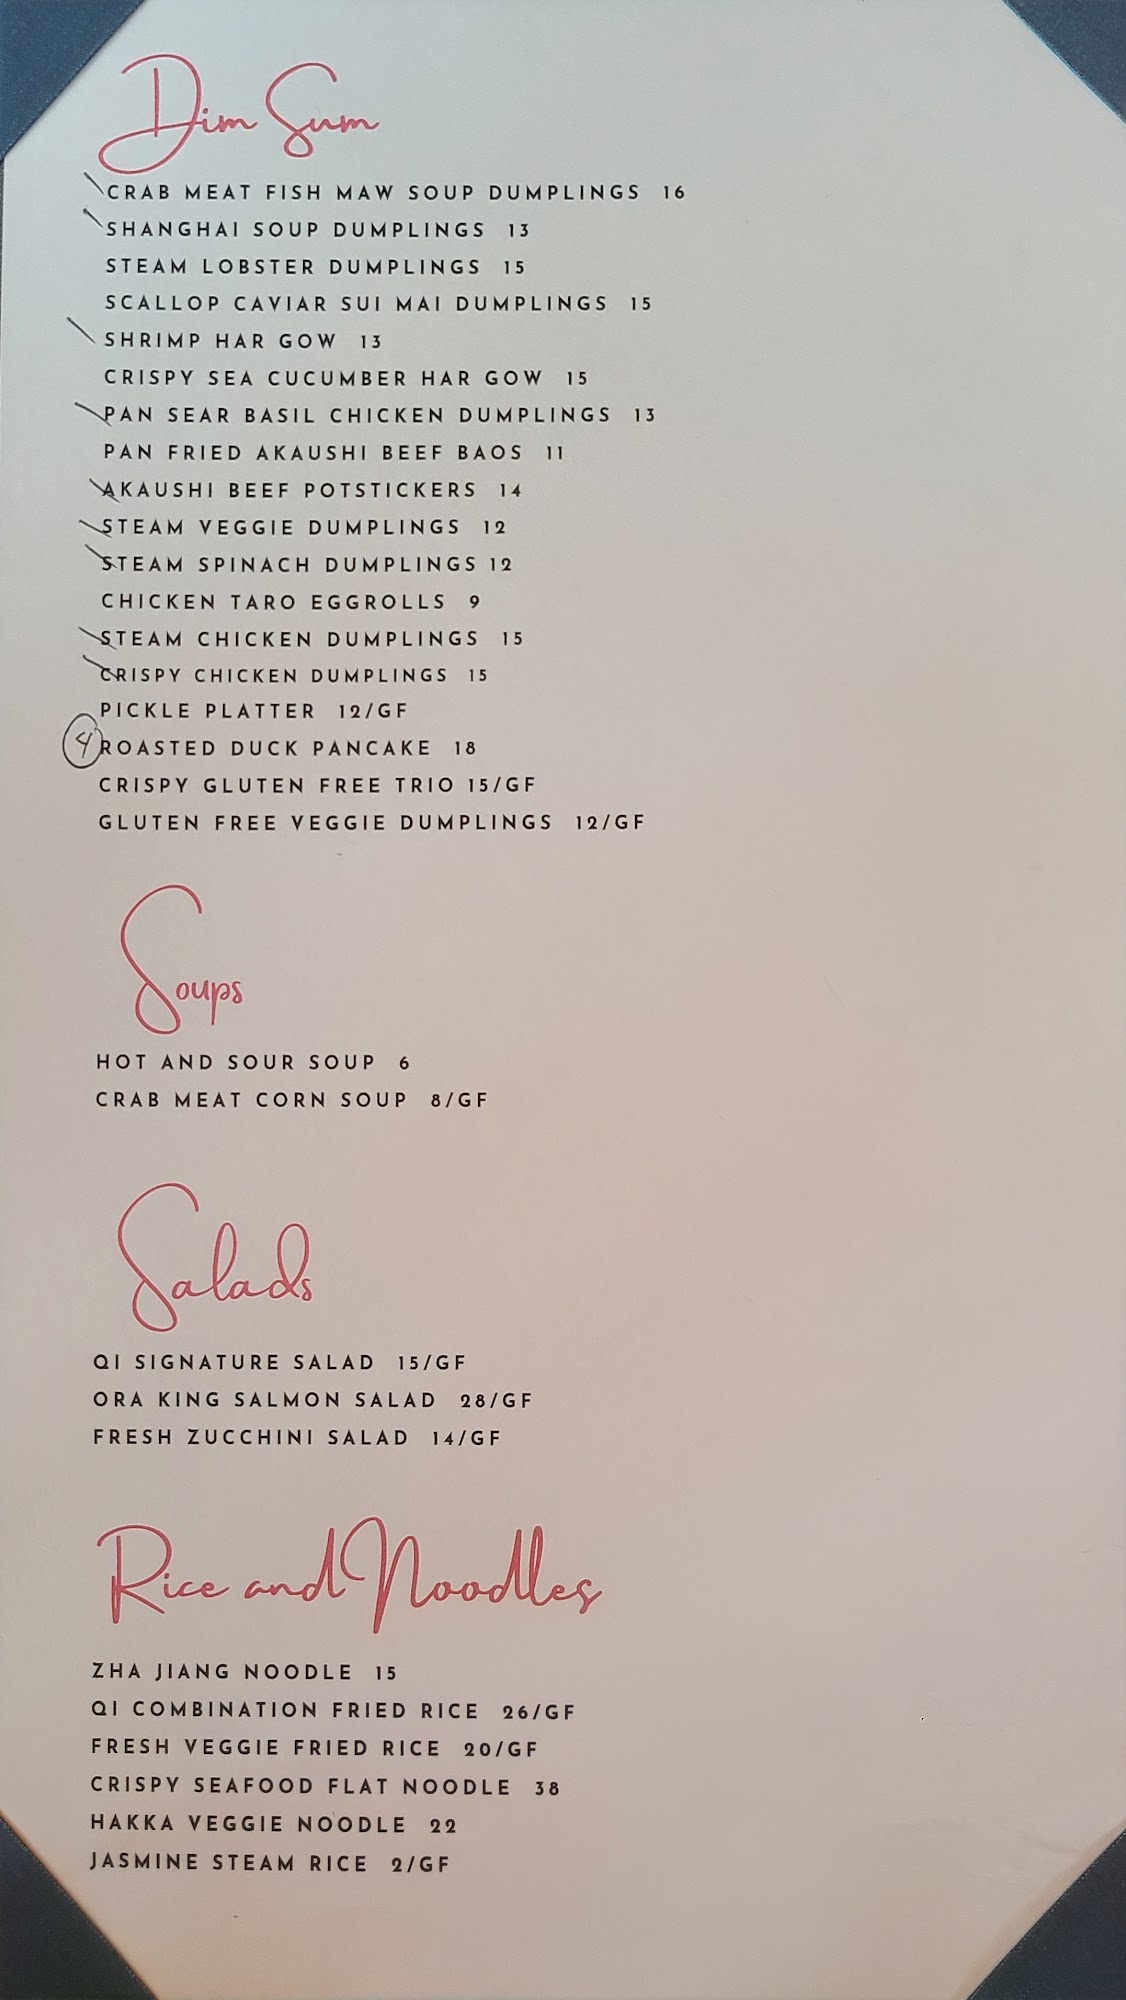 Dim Sum
CRAB MEAT FISH MAW SOUP DUMPLINGS 16
SHANGHAI SOUP DUMPLINGS 13
STEAM LOBSTER DUMPLINGS 15
SCALLOP CAVIAR SUI MAI DUMPLINGS 15
SHRIMP HAR GOW 13
CRISPY SEA CUCUMBER HAR GOW 15
PAN SEAR BASIL CHICKEN DUMPLINGS 13
PAN FRIED AKAUSHI BEEF BAOS 11
AKAUSHI BEEF POTSTICKERS 14
STEAM VEGGIE DUMPLINGS 12
STEAM SPINACH DUMPLINGS 12
CHICKEN TARO EGGROLLS 9
STEAM CHICKEN DUMPLINGS 15
CRISPY CHICKEN DUMPLINGS 15
PICKLE PLATTER 12/GF
4 ROASTED DUCK PANCAKE 18
CRISPY GLUTEN FREE TRIO 15/GF
GLUTEN FREE VEGGIE DUMPLINGS 12/GF
Soups
HOT AND SOUR SOUP 6
CRAB MEAT CORN SOUP 8/GF
Salads
QI SIGNATURE SALAD 15/GF
ORA KING SALMON SALAD 28/GF
FRESH ZUCCHINI SALAD 14/GF
Rice and Noodles
ZHA JIANG NOODLE 15
QI COMBINATION FRIED RICE 26/GF
FRESH VEGGIE FRIED RICE 20/GF
CRISPY SEAFOOD FLAT NOODLE 38
HAKKA VEGGIE NOODLE 22
JASMINE STEAM RICE 2/GF